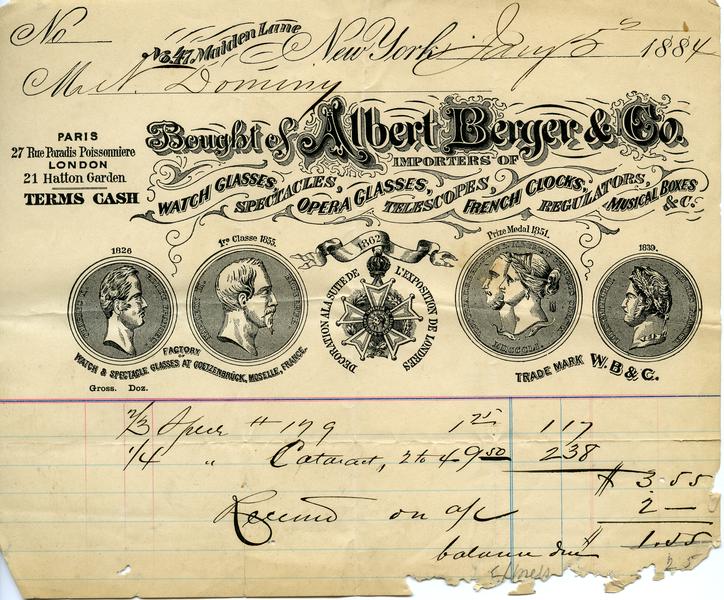 No
No. 47 Maiden Lane New York Jany 5 1884
M N. Dominy
PARIS
27 Rue Paradis Poissonniere
LONDON
21 Hatton Garden
TERMS CASH
Bought of Albert Berger & Co.
IMPORTERS OF
WATCH GLASSES, SPECTACLES, OPERA GLASSES, TELESCOPES, FRENCH CLOCKS, REGULATORS, MUSICAL BOXES & C.
1826
1re Classe 1855.
1862
Prize Medal 1851.
1839.
DECORATION A LA SUITE DE L'EXPOSITION DE LONDRES
MDCCCLI.
FACTORY OF
WATCH & SPECTACLE GLASSES AT GOETZENBRÜCK, MOSELLE, FRANCE.
TRADE MARK W.B & C.
Gross. Doz.
2/3 Spec # 179 1 75 117
1/4 " Cataract, 2 to 4 9 50 238
$ 3.55
Received on a/c 2 —
balance due $ 1.55